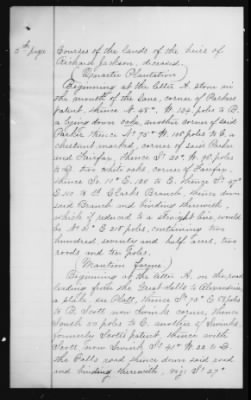 5th page
Courses of the lands of the heirs of
Richard Jackson, deceased.
(Quarter Plantation)
Beginning at the letter A. stone in
the mouth of the lane, corner of Parkers
patent, thence N. 48° W. 124 poles to B
a lying down oak, another corner of said
Parker thence N. 75° W. 108 poles to C, a
chestnut marked, corner of said Parker
and Fairfax, thence S. 20° W. 90 poles
to D. two white oaks, corner of Fairfax,
thence S. 10° E. 180 to E, thence S.
E 110 to Clarks Branch, thence down
said Branch and binding therewith,
which if reduced to a straight line, would
be N. E 218 poles, containing two
hundred seventy and half acres, two
roods and ten poles.
(Mansion farm)
Beginning at the letter A. on the road
leading from the Great Falls to Alexandria,
a stake in Platt, thence S. 70° E 78 poles
to B. Scott now Swinks corner, thence
South 50 poles to C. another of Swinks
formerly Scotts patent, thence with
Scott now Swink S. 41° W. 22 to D.
the Falls road thence down said road
and binding therewith, viz: S. 27°